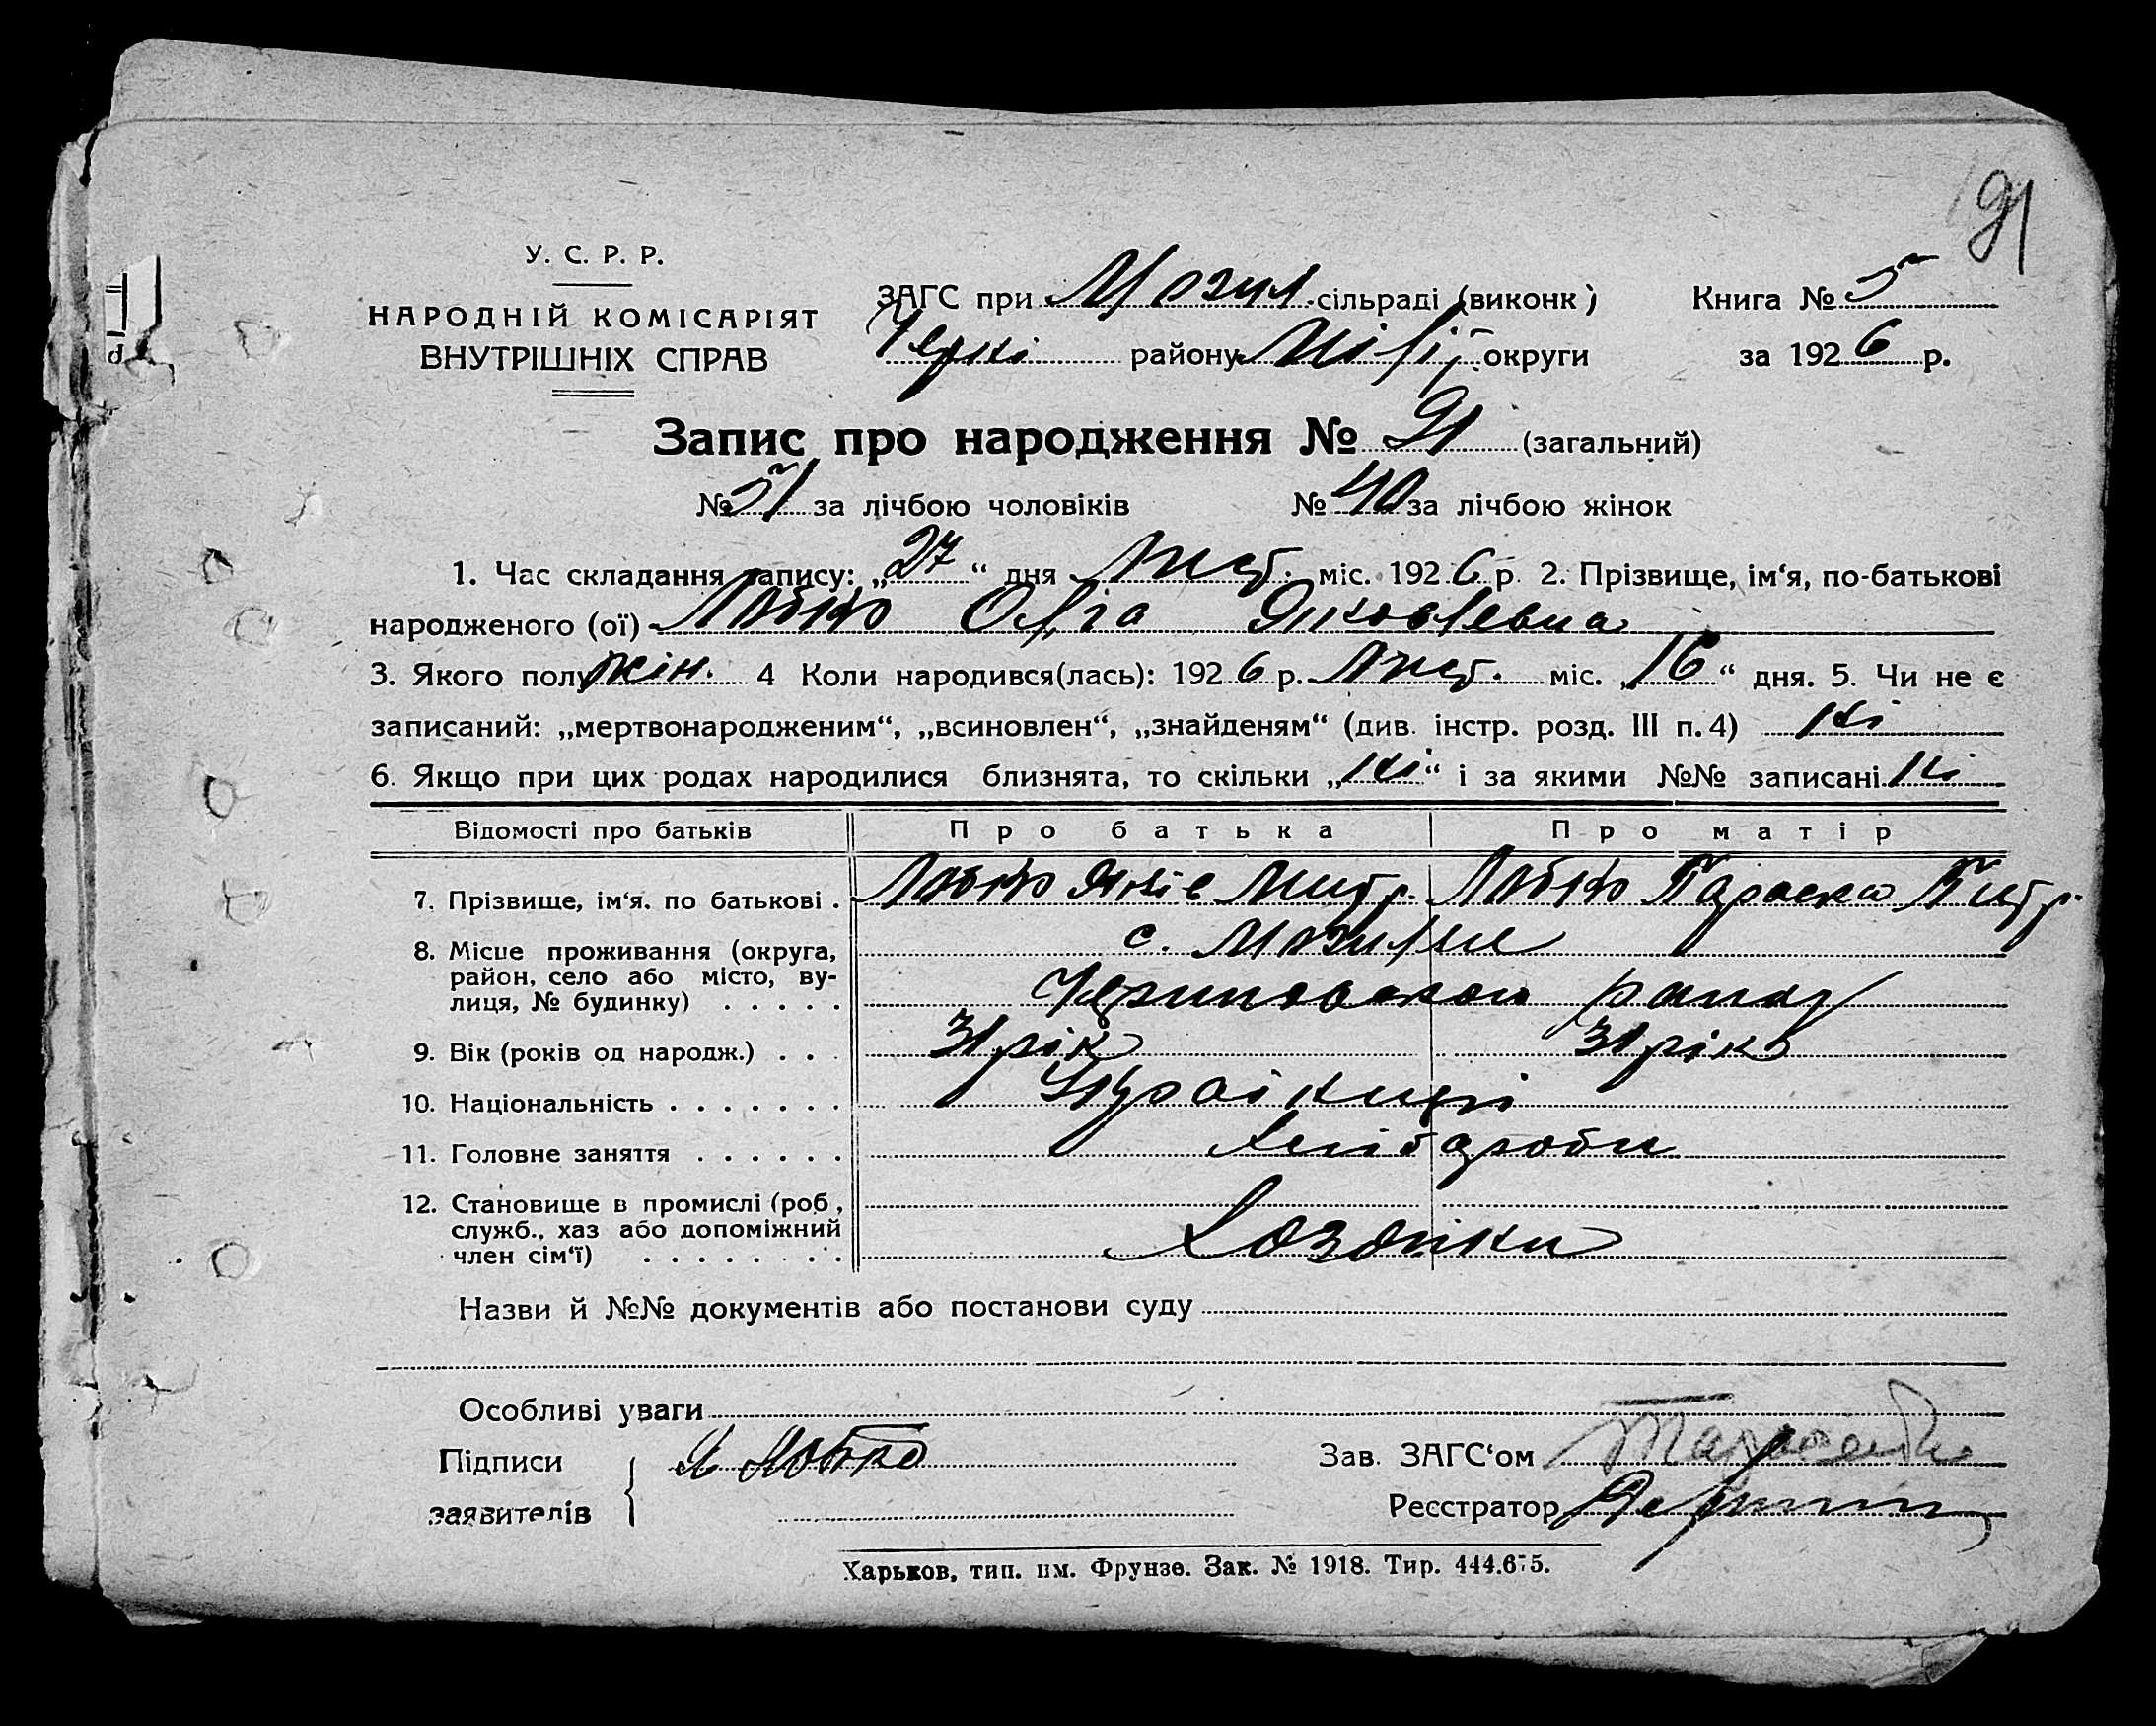 91
У. С. Р. Р.
НАРОДНІЙ КОМІСАРІЯТ
ВНУТРІШНІХ СПРАВ
ЗАГС при сільраді (виконк)
району округи
Книга № 5
за 1926 р.
Запис про народження № 91 (загальний)
№ 51 за лічбою чоловіків № 40 за лічбою жінок
1. Час складання запису: „27“ дня Лист. міс. 1926 р. 2. Прізвище, ім‘я, по-батькові
народженого (ої) Лобко Ольга Яковлевна
3. Якого полу жін. 4 Коли народився(лась): 1926 р. Лист. міс. „16“ дня. 5. Чи не є
записаний: „мертвонародженим“, „всиновлен“, „знайденям“ (див. інстр. розд. III п. 4) Ні
6. Якщо при цих родах народилися близнята, то скільки „Ні“ і за якими №№ записані Ні
Відомості про батьків Про батька Про матір
7. Прізвище, ім‘я, по батькові . Лобко Яків Митр. Лобко Параска Петр.
8. Місце проживання (округа, с.
район, село або місто, ву-
лиця, № будинку) . . . . . району
9. Вік (років од народж.) . . . 31 рік 31 рік
10. Національність . . . . . . . Українці
11. Головне заняття . . . . . . Хліборобы
12. Становище в промислі (роб,
служб., хаз або допоміжний
член сім‘ї) . . . . . . . . Хозяйки
Назви й №№ документів або постанови суду
Особливі уваги
Підписи
заявителів
Я Лобко
Зав. ЗАГС‘ом
Реєстратор
Харьков, тип. им. Фрунзе. Зак. № 1918. Тир. 444.675.